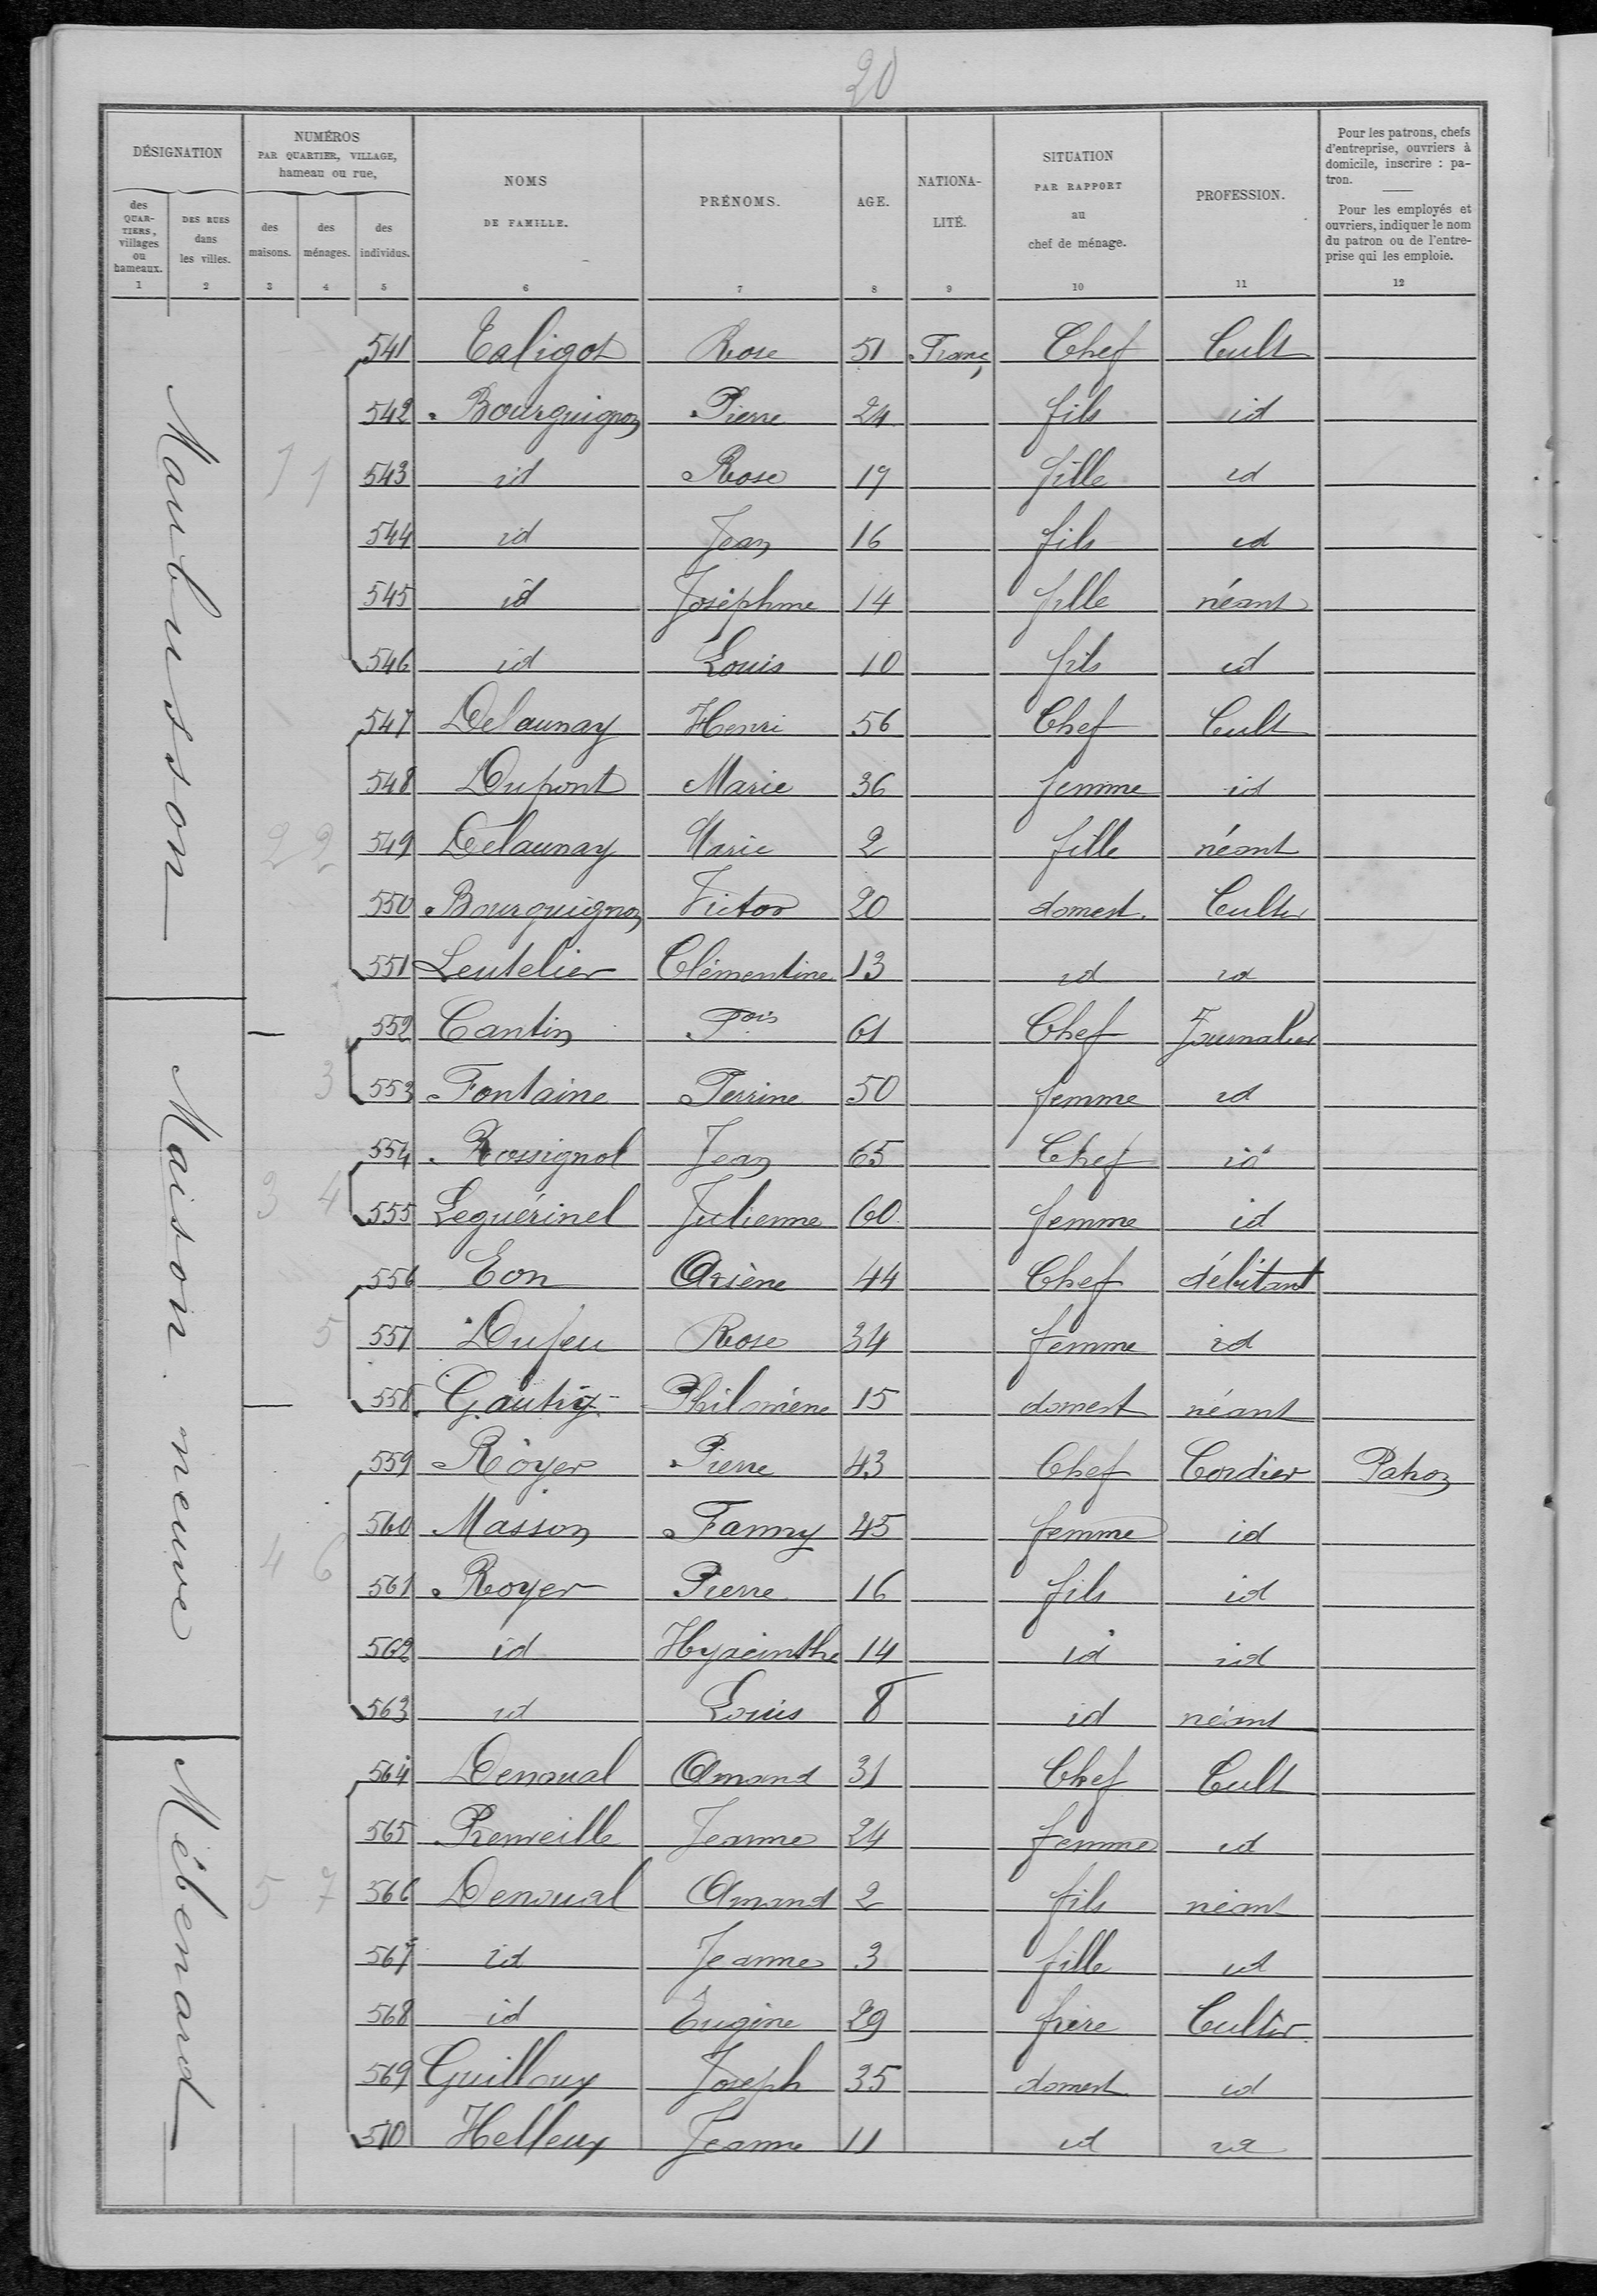 20
DÉSIGNATION
NUMÉROS
PAR QUARTIER, VILLAGE,
hameau ou rue,
des QUAR-TIERS, villages ou hameaux.
DES RUES dans les villes.
des maisons.
des ménages.
des individus.
NOMS DE FAMILLE.
PRÉNOMS.
AGE.
NATIONA-LITÉ.
SITUATION PAR RAPPORT au chef de ménage.
PROFESSION.
Pour les patrons, chefs d'entreprise, ouvriers à domicile, inscrire : pa-tron.
Pour les employés et ouvriers, indiquer le nom du patron ou de l'entre-prise qui les emploie.
1 2 3 4 5 6 7 8 9 10 11 12
Maubusson
541 Taligot Rose 51 Franç Chef Cult
542 Bourguignon Pierre 24 fils id
1 1 543 id Rose 19 fille id
544 id Jean 16 fils id
545 id Joséphine 14 fille néant
546 id Louis 10 fils id
547 Delaunay Henri 56 Chef Cult
548 Dupont Marie 36 femme id
2 2 549 Delaunay Marie 2 fille néant
550 Bourguignon Victor 20 domest. Cultr
551 Leutelier Clémentine 13 id id
Maison neuve
552 Cantin Fois 61 Chef Journalier
3 553 Fontaine Perrine 50 femme id
554 Rossignol Jean 65 Chef id
3 4 555 Leguérinel Julienne 60 femme id
556 Eon Arsène 44 Chef débitant
5 557 Dufeu Rose 34 femme id
558 Gautry Philomène 15 domest néant
559 Royer Pierre 43 Chef Cordier Patron
560 Masson Fanny 45 femme id
4 6 561 Royer Pierre 16 fils id
562 id Hyacinthe 14 id id
563 id Louis 8 id néant
Mébenard
564 Denoual Amand 31 Chef Cult
565 Renveille Jeanne 24 femme id
5 7 566 Denoual Amand 2 fils néant
567 id Jeanne 3 fille id
568 id Eugène 29 frère Cultr
569 Guilloux Joseph 35 domest id
570 Helleux Jeanne 11 id id